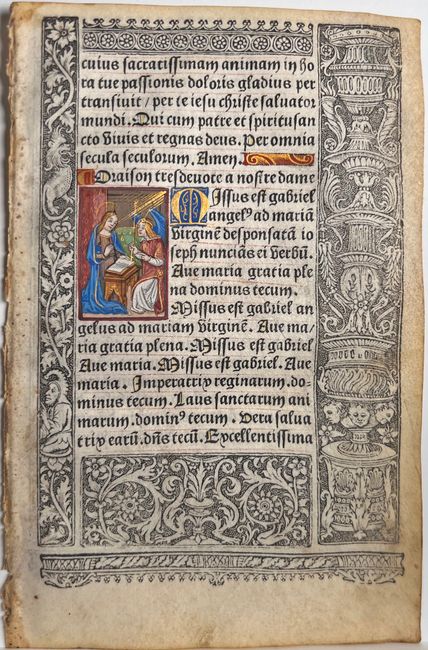 cuius sacratissimam animam in ho
ra tue passionis doloris gladius per
transiuit / per te iesu christe saluator
mundi. Qui cum patre et spiritusan
cto viuis et regnas deus. Per omnia
secula seculorum. Amen.
Oraison tresdeuote a nostre dame
Missus est gabriel
angelꝰ ad mariā
virginē desponsatā io
seph nunciās ei verbū.
Aue maria gratia ple
na dominus tecum.
Missus est gabriel an
gelus ad mariam virginē. Aue ma/
ria gratia plena. Missus est gabriel
Aue maria. Missus est gabriel. Aue
maria. Imperatrix reginarum. do-
minus tecum. Laus sanctarum ani
marum. dominꝰ tecum. Vera salua
trix earū. dn̄s tecū. Excellentissima